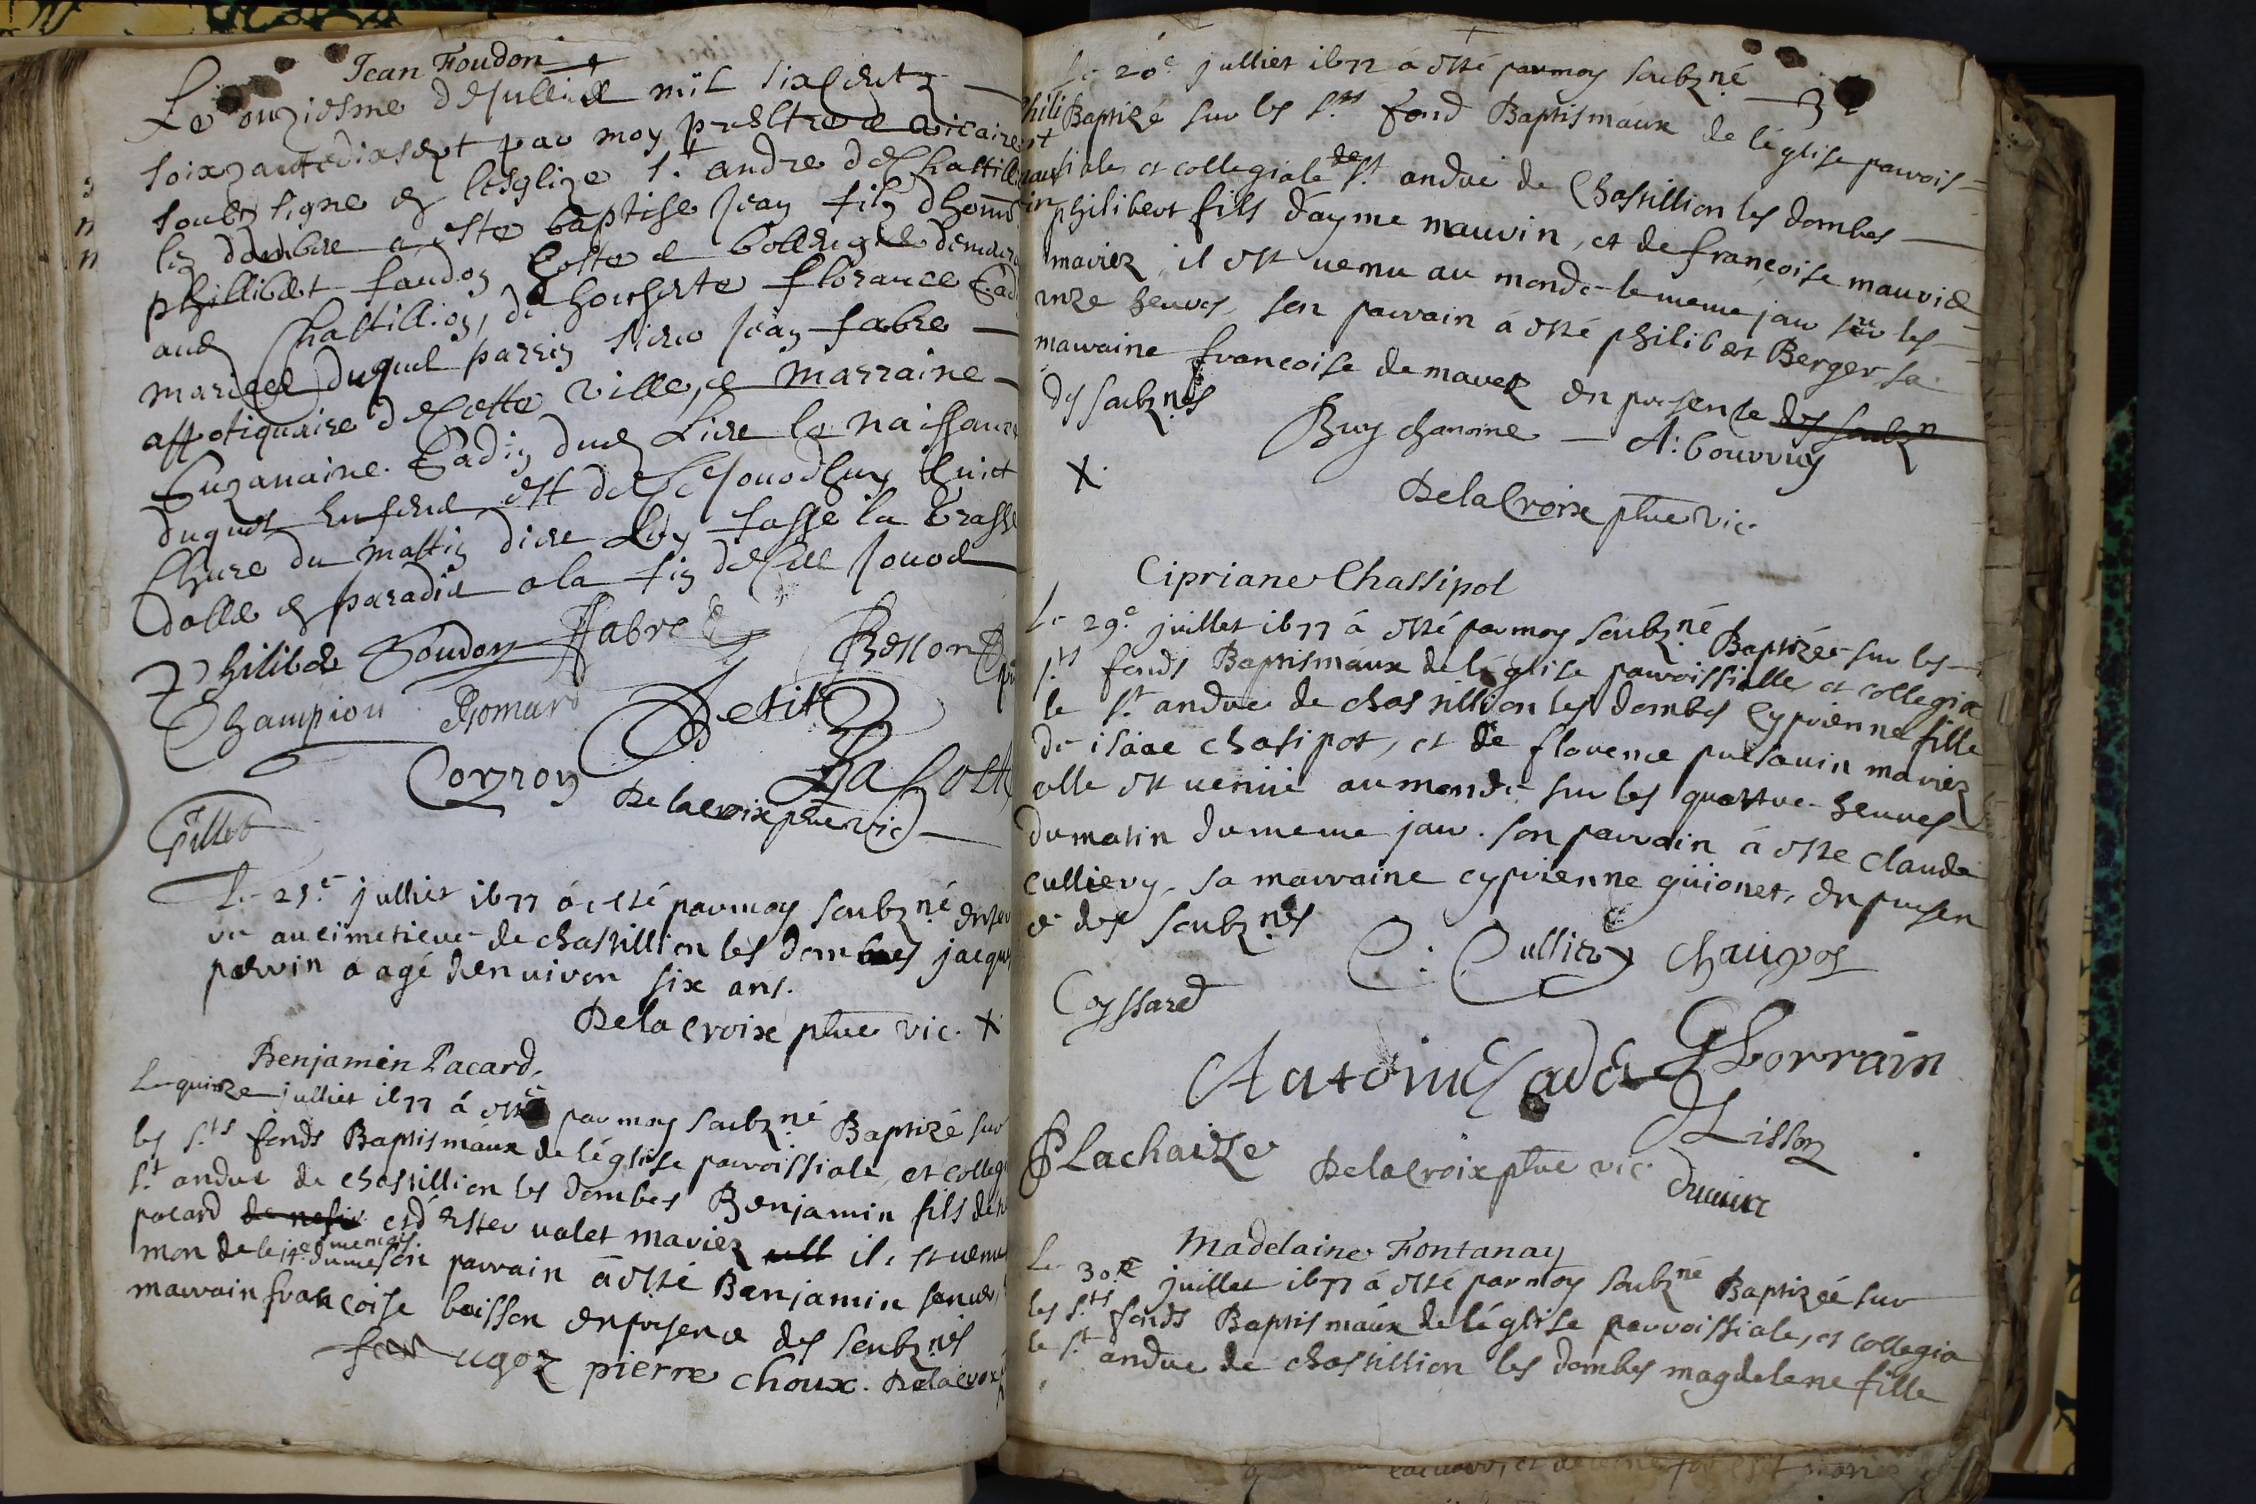 Jean Foudon
Le onziesme de Juillet mil six centz
soixzante dix sept par moy prestre & vicaire
soubz signe en lesglize St. andre de Chastillon
les dombe a este baptise Jean filz dhonn
Phillibert faudon hoste & bollengier demeur
aud Chastillion, & dhonneste florance Gad
mariees duquel parrin sieur Jean fabre
appotiquaire de cette ville, & marraine
Suzanaine Gadin dud Lieu la naissance
duquel enfend est de ce jourdhuy huict
heure du mattin dieu luy fasse la grasse
dalle en paradis a la fin de ses jours
Philibert Foudon Fabre Besson
Champion Gomard Petit
Corron La Coste
Delacroix pbre vic
Pillet
Le 21e julliet 1677 á esté par moy soubz.né enter
ré au cimetiere de chastillion les dombes jacque
parvin a agé denviron six ans.
Dela croix pbre vic. X
Benjamin Pacard.
Le quinze julliet 1677 á esté par moy soubz.né Baptizé sur
les S.ts fonds Baptismáux de l'église parroissiale, et collegi
S.t andre de chastillion les dombes Benjamin fils de
pacard de nesie et d'Ester valet mariez ill il est venu
mon de le 14e du mesme mois. son parrain á esté Benjamin
marrain francoise buisson en presence des soubz.nés
ugoz pierre choux. Delacroix
Le 20e julliet 1677 á esté par moy soubz.né
Phili Baptizé sur les S.ts fond Baptismaux de l'église parrois-
bert siale et collegiale de S.t andre de Chastillion les dombes
mau philibert fils d'ayme mauvin, et de françoise mauvie
rin mariez, il est venu au monde le meme jour sur les
onze heures, son parrain á esté philibert Berger sa
marraine francoise demavez en presence des soubz.n
des soubz.nés
Buy chanoine - A: bouvruy
X.
Delacroix pbre vic.
Cipriane Chassipol
Le 29.e juillet 1677 á esté par moy soubz.né Baptizée sur les
S.ts fonds Baptismáux de l'église parroissialle et collegia
le S.t andre de chastillion les dombes Cyprienne fille
de isáac chasipot, et de florence presavin mariez
elle est venüe au monde sur les quattre heures
du matin du meme jour. son parrain á esté claude
cullievy. sa marraine cyprienne guionet, en presen
ce des soubz.nés
C: Cullier Chaipos
Coyssard
Antoine Cade G Lorrain
P Lachaize Lisson
Delacroix pbre vic.
Madelaine Fontanay
Le 30.e juillet 1677 á esté par moy soubz.né Baptizée sur
les S.ts fonds Baptismáux de l'église parroissiale, et collegia
le S.t andre de chastillion les dombes magdelene fille